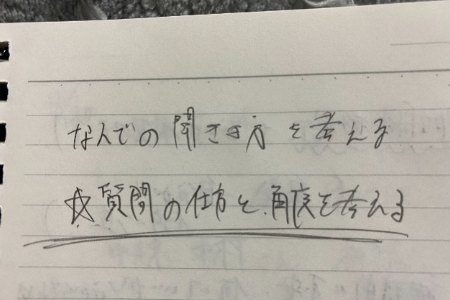 なんでの聞き方を考える
☆質問の仕方と、角度を考える